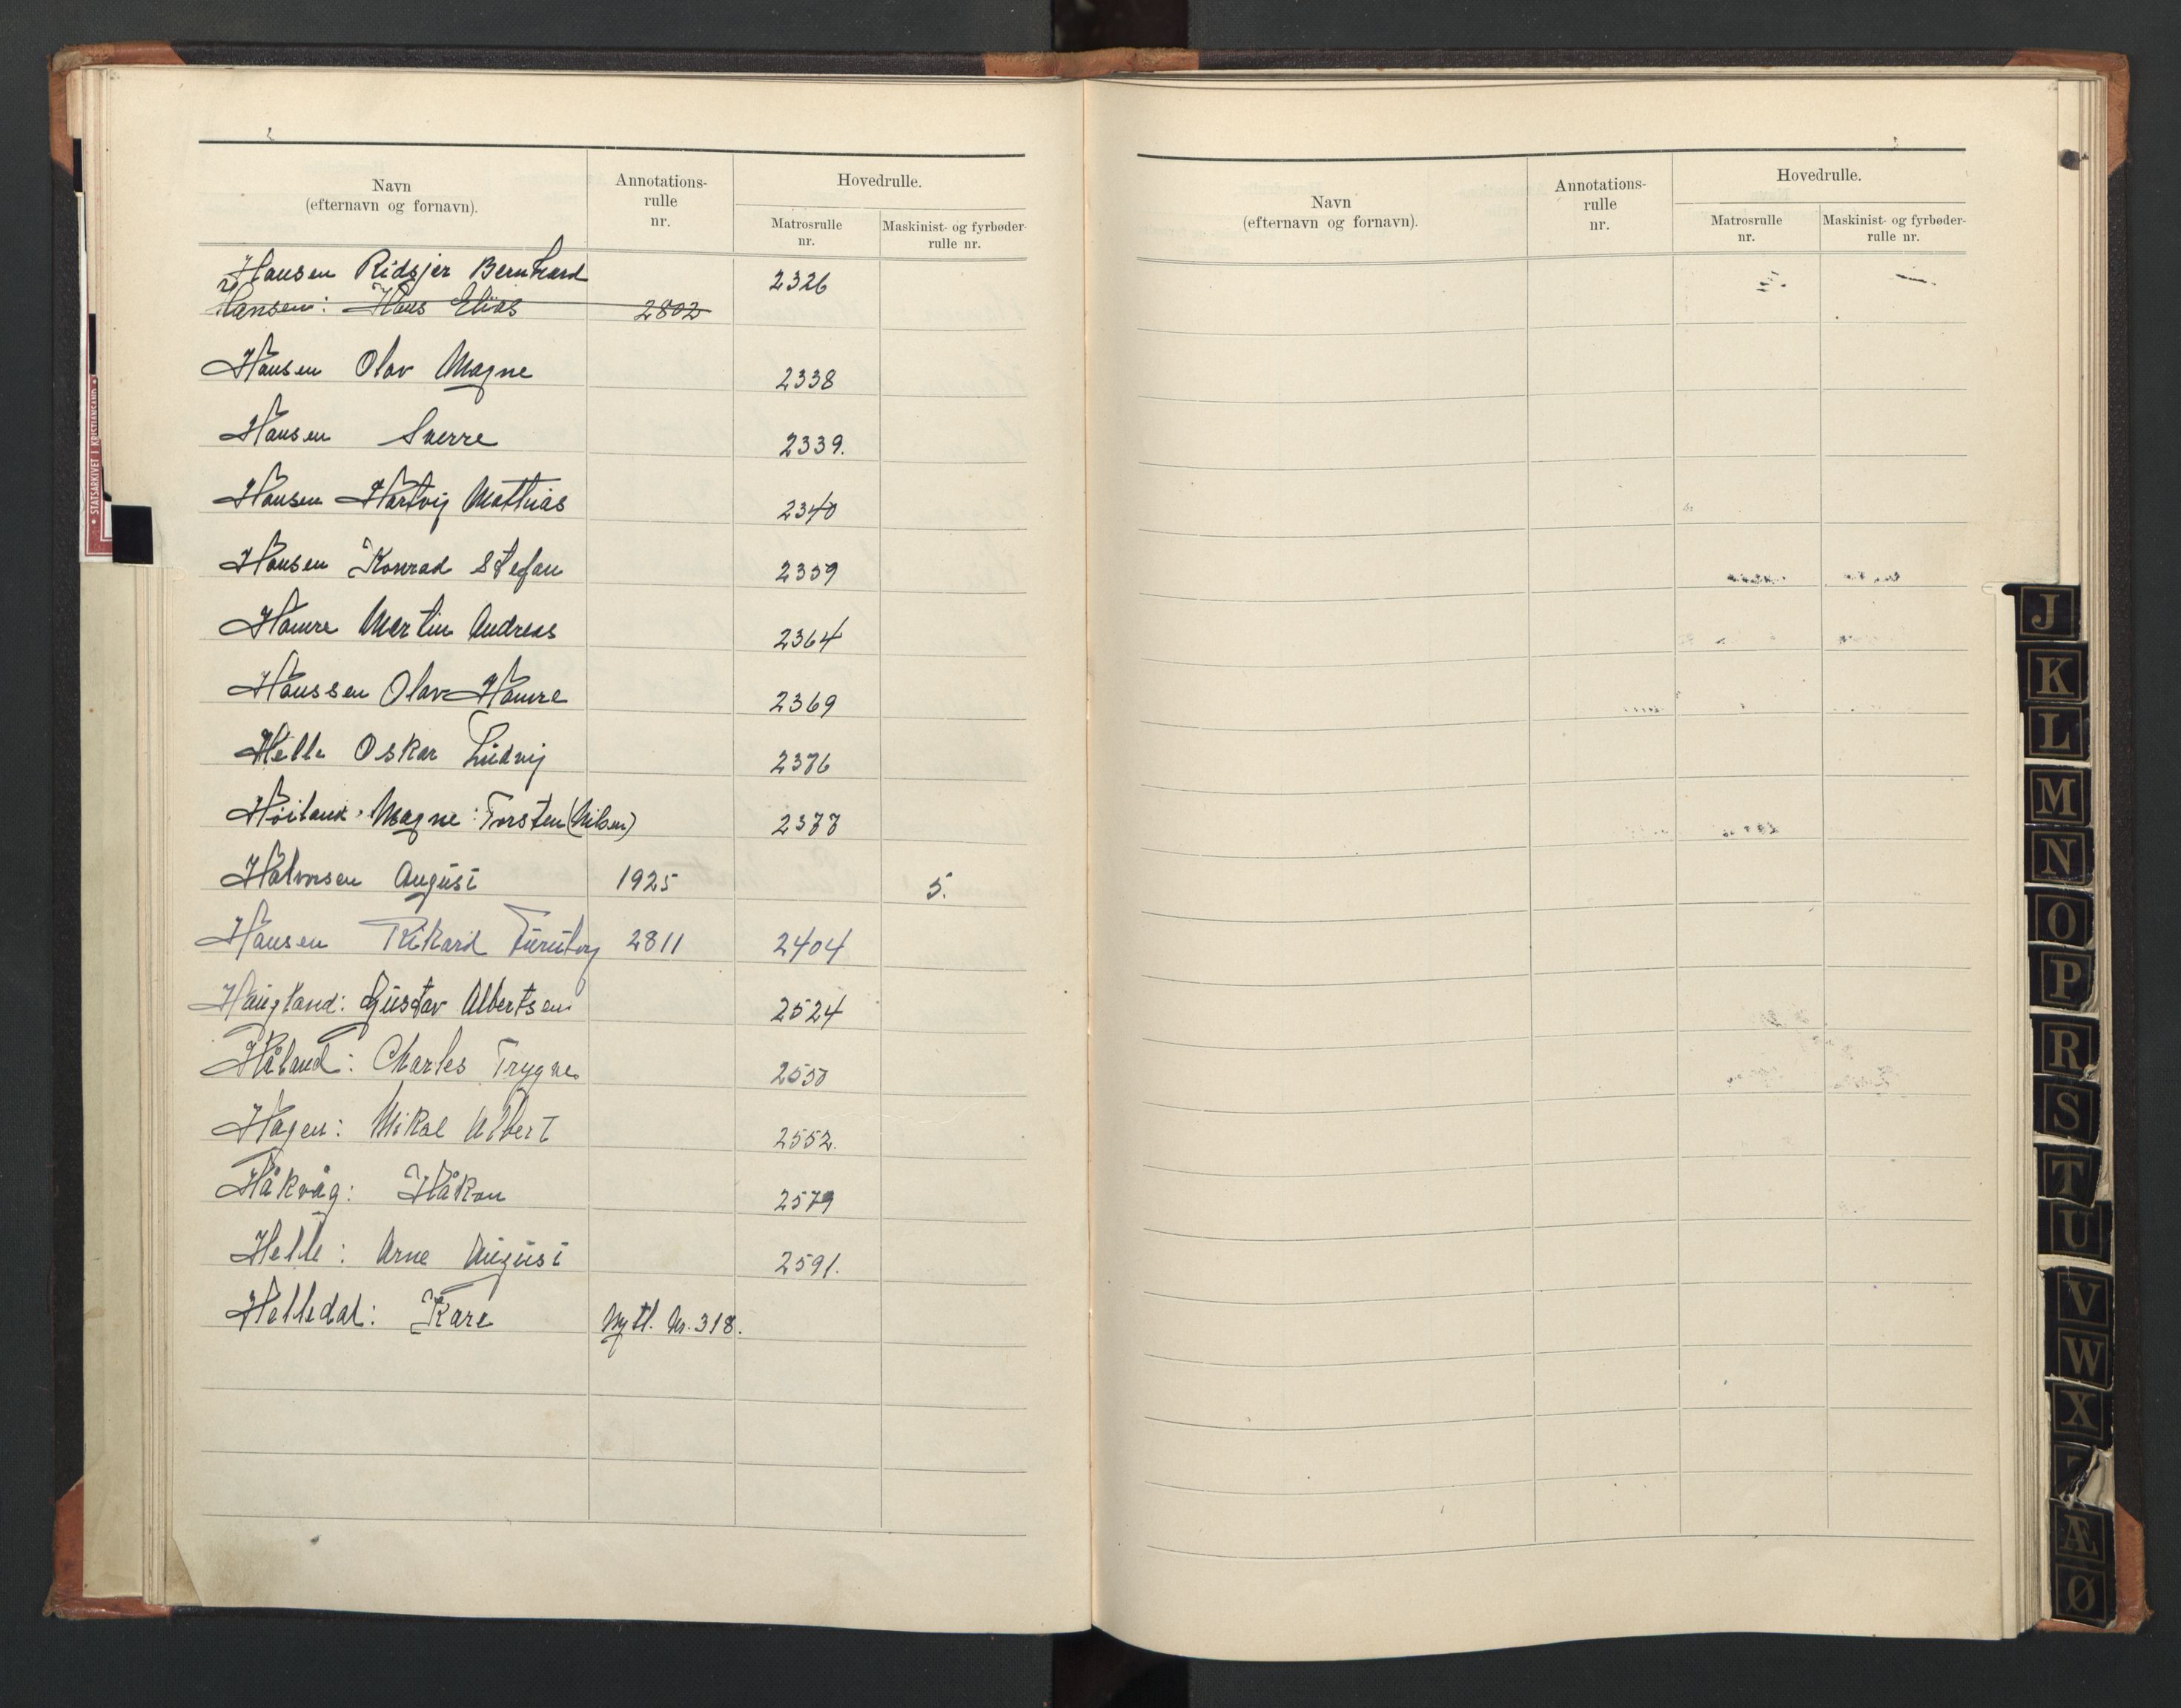 Navn
(efternavn og fornavn).
Annotations-
rulle
nr.
Hovedrulle.
Matrosrulle
nr.
Maskinist- og fyrbøder-
rulle nr.
Hansen Ridsjer Bernhard 2326
Hansen: Hans Elias 2802
Hansen Olav Magne 2338
Hansen Sverre 2339.
Hansen Hartvig Mathias 2340
Hansen Konrad Stefan 2359
Hamre Martin Andreas 2364
Hanssen Olav Hamre 2369
Helle Oskar Ludvig 2376
Høiland Magne Torsten (Nilsen) 2377
Halvorsen August 1925 5.
Hansen Rikard 2811 2404
Haugland: Gustav Albertsen 2524
Håland: Charles Trygve 2550
Hagen: Mikal Albert 2552.
Håkvåg: Håkon 2579
Helle: Arne August 2591.
Helledal: Kare Nytl. Nr. 318.
Navn
(efternavn og fornavn).
Annotations-
rulle
nr.
Hovedrulle.
Matrosrulle
nr.
Maskinist- og fyrbøder-
rulle nr.
• STATSARKIVET I KRISTIANSAND •
J
K
L
M
N
O
P
R
S
T
U
V
W
X
Æ
Ø